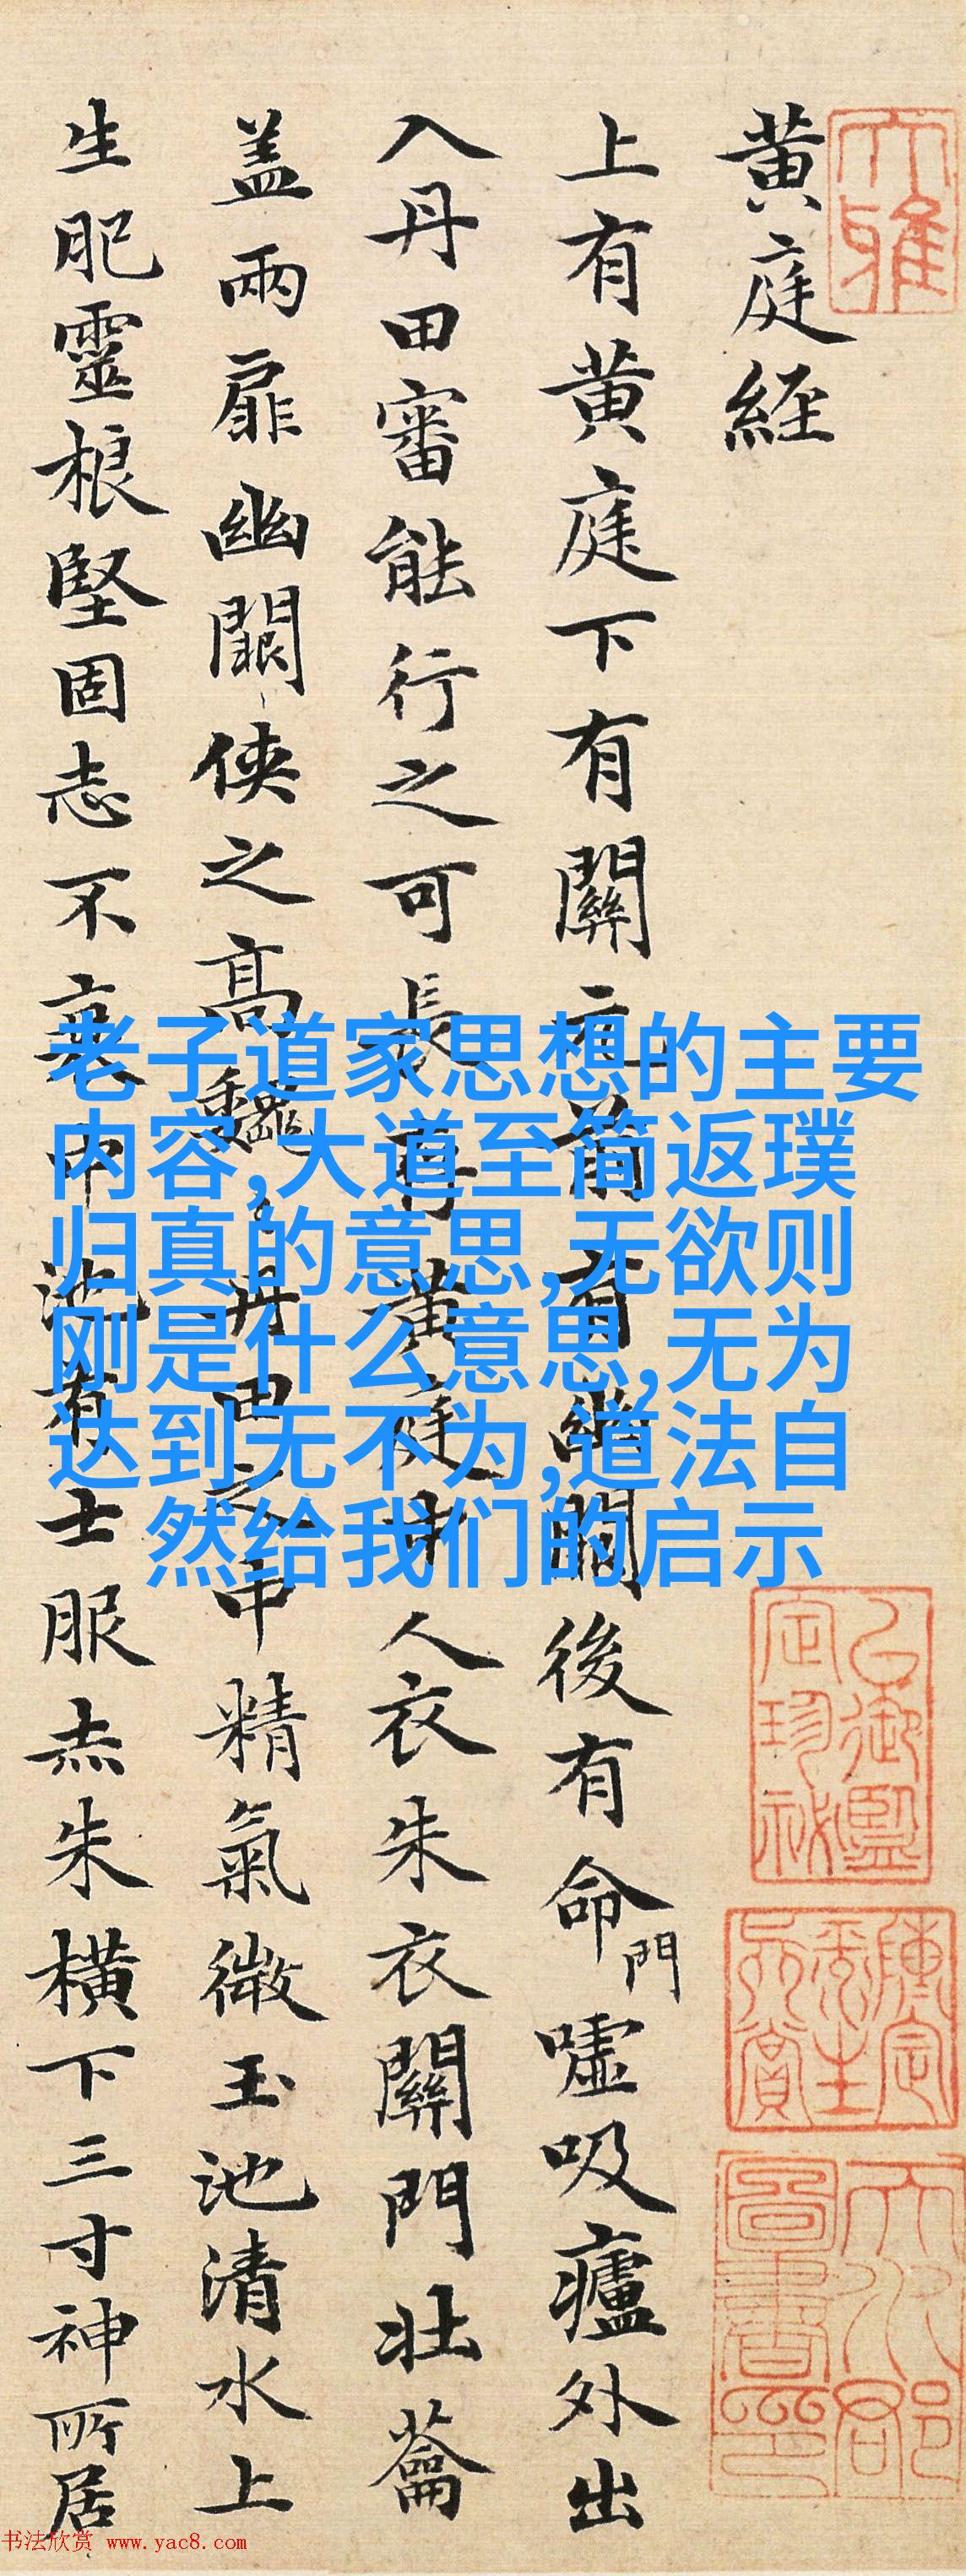 大雅
黄庭経
上有黄庭下有關元前有幽闕後有命門嘘吸廬外出
入丹田審能行之可長存黄庭中人衣朱衣關門壮蘥
盖兩扉幽闕俠之高巍〻丹田之中精氣微玉池清水上
生肥靈根堅固志不衰中池有士服赤朱横下三寸神所居
老子道家思想的主要
内容,大道至简返璞
归真的意思,无欲则
刚是什么意思,无为
达到无不为,道法自
然给我们的启示
书法欣赏 www.yac8.com